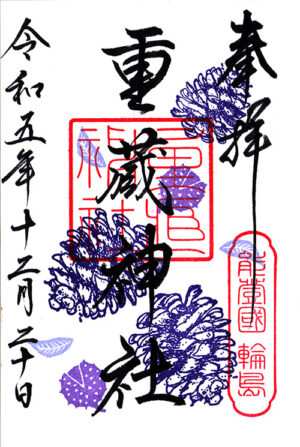 奉拝
能登國 輪島
重蔵神社
重蔵神社
令和五年十二月二十日